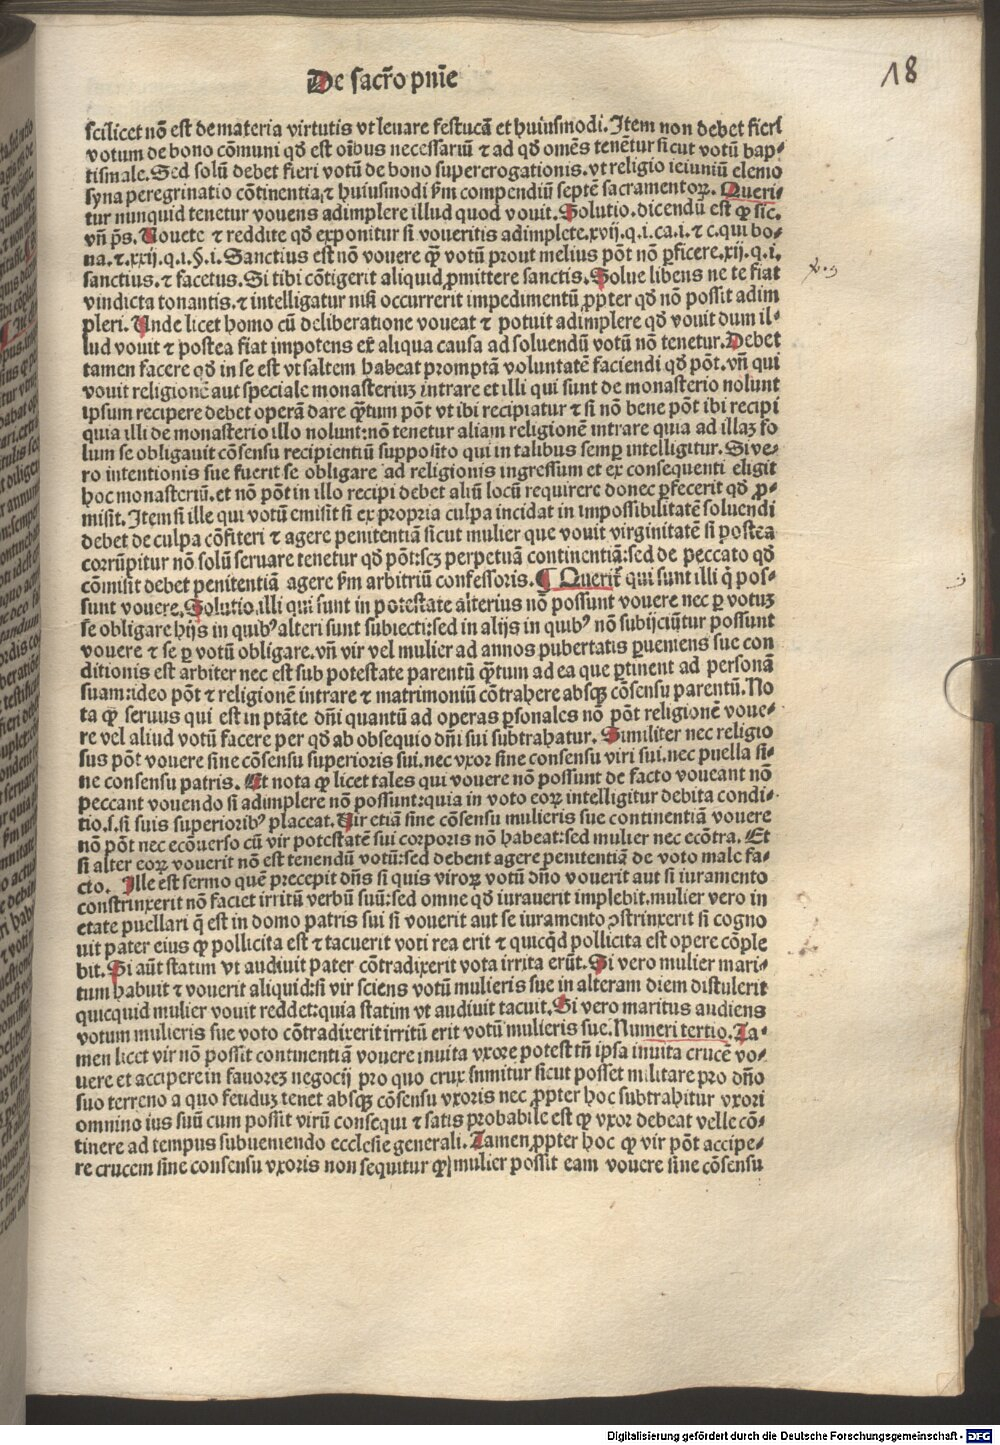 De sacro pnīe
18
scilicet nō est de materia virtutis vt leuare festucā et huiusmodi. Item non debet fieri
votum de bono cōmuni qđ est oībus necessariū ⁊ ad qđ omēs tenētur sicut votū bap⸗
tismale. Sed solū debet fieri votū de bono supererogationis. vt religio ieiuniū elemo
syna peregrinatio cōtinentia, ⁊ huiusmodi ẜm compendiū septē sacramentoꝝ. Queri⸗
tur nunquid tenetur vouens adimplere illud quod vouit. Solutio. dicendū est ꝙ sic.
vñ p̄s. Vouete ⁊ reddite qđ exponitur si voueritis adimplete. xvij. q. i. ca. i. ⁊ c. qui bo⸗
na. ⁊. xxij. q. i. §. i. Sanctius est nō vouere qȝ votū prout melius pōt nō ꝑficere. xij. q. i.
sanctius. ⁊ facetus. Si tibi cōtigerit aliquid ꝓmittere sanctis. Solue libens ne te fiat
vindicta tonantis. ⁊ intelligatur nisi occurrerit impedimentū ꝓpter qđ nō possit adim
pleri. Vnde licet homo cū deliberatione voueat ⁊ potuit adimplere qđ vouit dum il⸗
lud vouit ⁊ postea fiat impotens ex aliqua causa ad soluendū votū nō tenetur. Debet
tamen facere qđ in se est vt saltem habeat promptā voluntatē faciendi qđ pōt. vñ qui
vouit religionē aut speciale monasteriuȝ intrare et illi qui sunt de monasterio nolunt
ipsum recipere debet operā dare q̄tum pōt vt ibi recipiatur ⁊ si nō bene pōt ibi recipi
quia illi de monasterio illo nolunt: nō tenetur aliam religionē intrare quia ad illaȝ so
lum se obligauit cōsensu recipientiū supposito qui in talibus semꝑ intelligitur. Si ve⸗
ro intentionis sue fuerit se obligare ad religionis ingressum et ex consequenti eligit
hoc monasteriū. et nō pōt in illo recipi debet aliū locū requirere donec ꝑfecerit qđ ꝓ⸗
misit. Item si ille qui votū emisit si ex propria culpa incidat in impossibilitatē soluendi
debet de culpa cōfiteri ⁊ agere penitentiā sicut mulier que vouit virginitatē si postea
corrūpitur nō solū seruare tenetur qđ pōt: scȝ perpetuā continentiā: sed de peccato qđ
cōmisit debet penitentiā agere ẜm arbitriū confessoris. ¶ Querit̄ qui sunt illi q̄ pos⸗
sunt vouere. Solutio. illi qui sunt in potestate alterius nō possunt vouere nec ꝑ votuȝ
se obligare hijs in quibꝰ alteri sunt subiecti: sed in alijs in quibꝰ nō subijciūtur possunt
vouere ⁊ se ꝑ votū obligare. vñ vir vel mulier ad annos pubertatis ꝑueniens sue con
ditionis est arbiter nec est sub potestate parentū q̄tum ad ea que ꝑtinent ad personā
suam: ideo pōt ⁊ religionē intrare ⁊ matrimoniū cōtrahere absqȝ cōsensu parentū. No
ta ꝙ seruus qui est in ptāte dñi quantū ad operas ꝑsonales nō pōt religionē voue⸗
re vel aliud votū facere per qđ ab obsequio dñi sui subtrahatur. Similiter nec religio
sus pōt vouere sine cōsensu superioris sui. nec vxor sine consensu viri sui. nec puella si⸗
ne consensu patris. Et nota ꝙ licet tales qui vouere nō possunt de facto voueant nō
peccant vouendo si adimplere nō possunt: quia in voto eoꝝ intelligitur debita condi⸗
tio. s. si suis superioribꝰ placeat. Vir etiā sine cōsensu mulieris sue continentiā vouere
nō pōt nec ecōuerso cū vir potestatē sui corporis nō habeat: sed mulier nec ecōtra. Et
si alter eoꝝ vouerit nō est tenendū votū: sed debent agere penitentiā de voto male fa⸗
cto. Ille est sermo quē precepit dn̄s si quis viroꝝ votū dño vouerit aut si iuramento
constrinxerit nō faciet irritū verbū suū: sed omne qđ iurauerit implebit. mulier vero in
etate puellari q̄ est in domo patris sui si vouerit aut se iuramento ꝯstrinxerit si cogno
uit pater eius ꝙ pollicita est ⁊ tacuerit voti rea erit ⁊ quicq̄d pollicita est opere cōple
bit. Si aūt statim vt audiuit pater cōtradixerit vota irrita erūt. Si vero mulier mari⸗
tum habuit ⁊ vouerit aliquid: si vir sciens votū mulieris sue in alteram diem distulerit
quicquid mulier vouit reddet: quia statim vt audiuit tacuit. Si vero maritus audiens
votum mulieris sue voto cōtradixerit irritū erit votū mulieris sue. Numeri tertio. Ta⸗
men licet vir nō possit continentiā vouere inuita vxore potest tñ ipsa inuita crucē vo⸗
uere et accipere in fauoreȝ negocij pro quo crux sumitur sicut posset militare pro dño
suo terreno a quo feuduȝ tenet absqȝ cōsensu vxoris nec ꝓpter hoc subtrahitur vxori
omnino ius suū cum possit virū consequi ⁊ satis probabile est ꝙ vxor debeat velle cō⸗
tinere ad tempus subueniendo ecclesie generali. Tamen ꝓpter hoc ꝙ vir pōt accipe⸗
re crucem sine consensu vxoris non sequitur ꝙ mulier possit eam vouere sine cōsensu
Digitalisierung gefördert durch die Deutsche Forschungsgemeinschaft - DFG